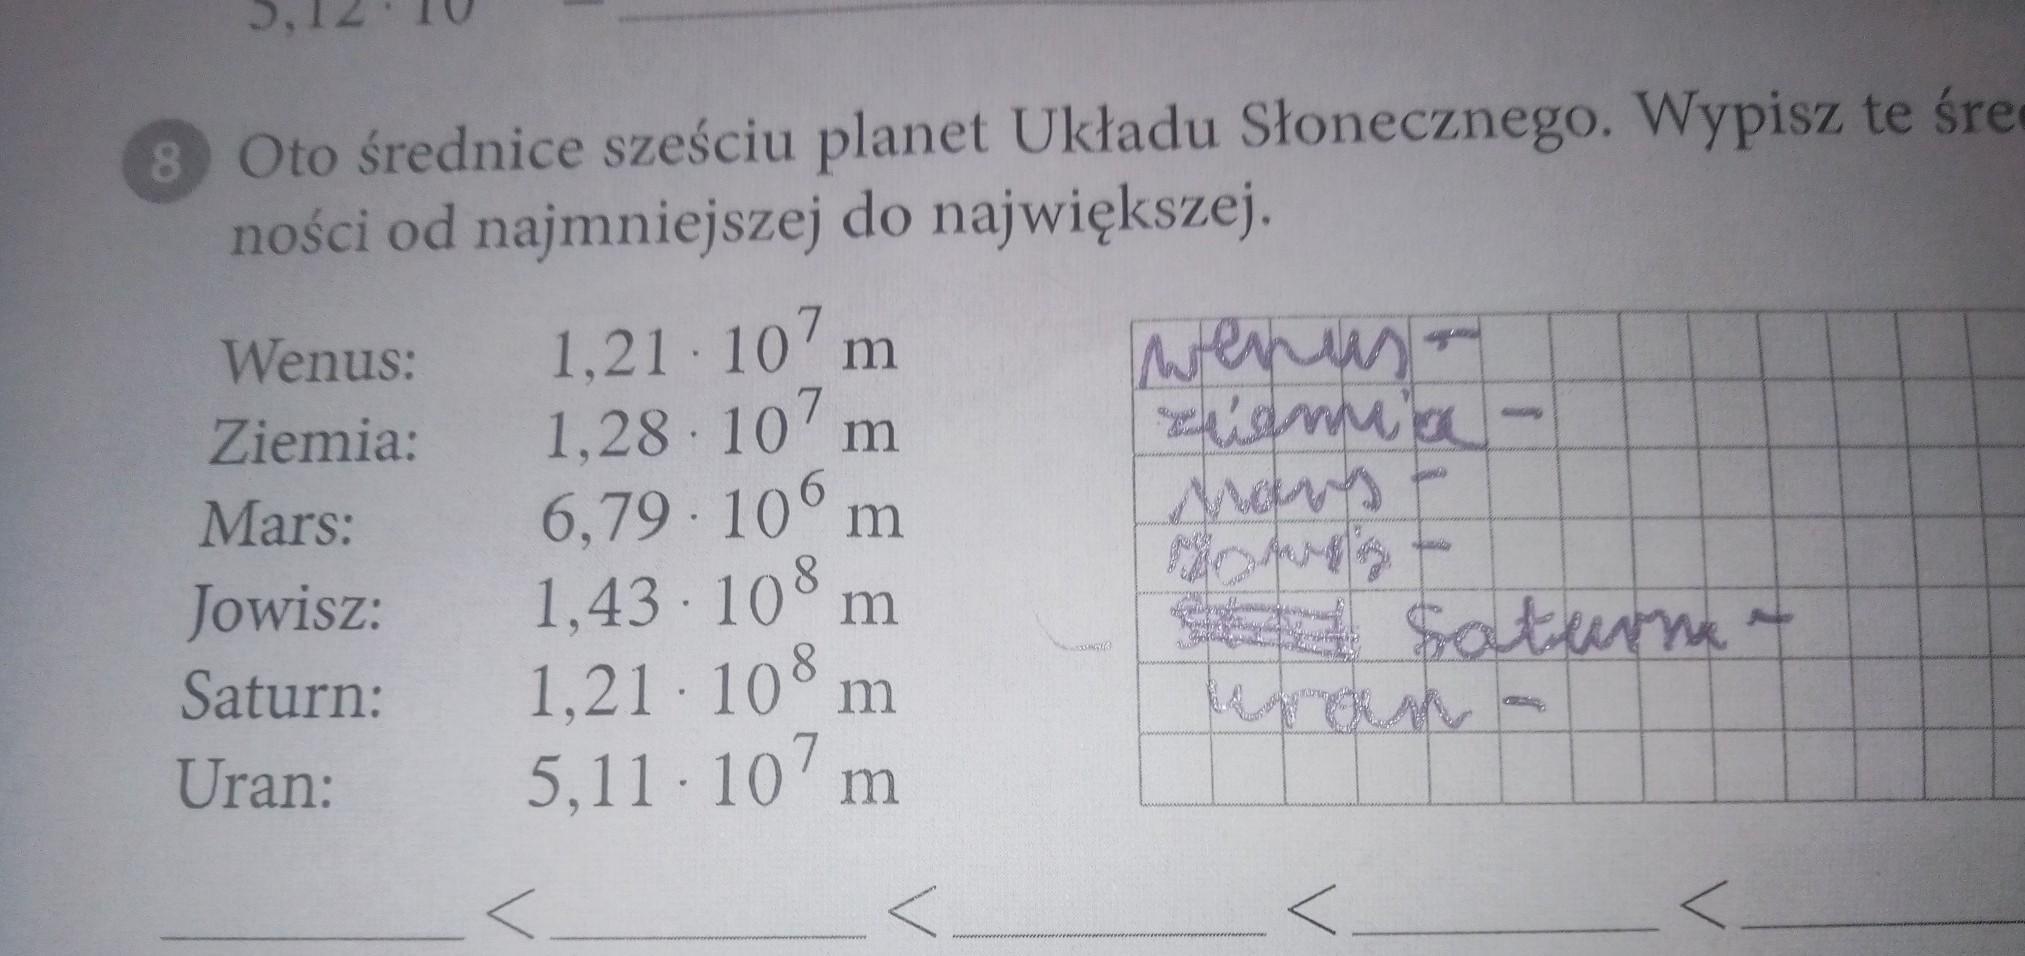 5,12 · 10
8 Oto średnice sześciu planet Układu Słonecznego. Wypisz te śre
ności od najmniejszej do największej.
Wenus: 1,21 · 10⁷ m
Ziemia: 1,28 · 10⁷ m
Mars: 6,79 · 10⁶ m
Jowisz: 1,43 · 10⁸ m
Saturn: 1,21 · 10⁸ m
Uran: 5,11 · 10⁷ m
wenus -
ziemia -
Mars -
Saturn -
uran -
< < < <